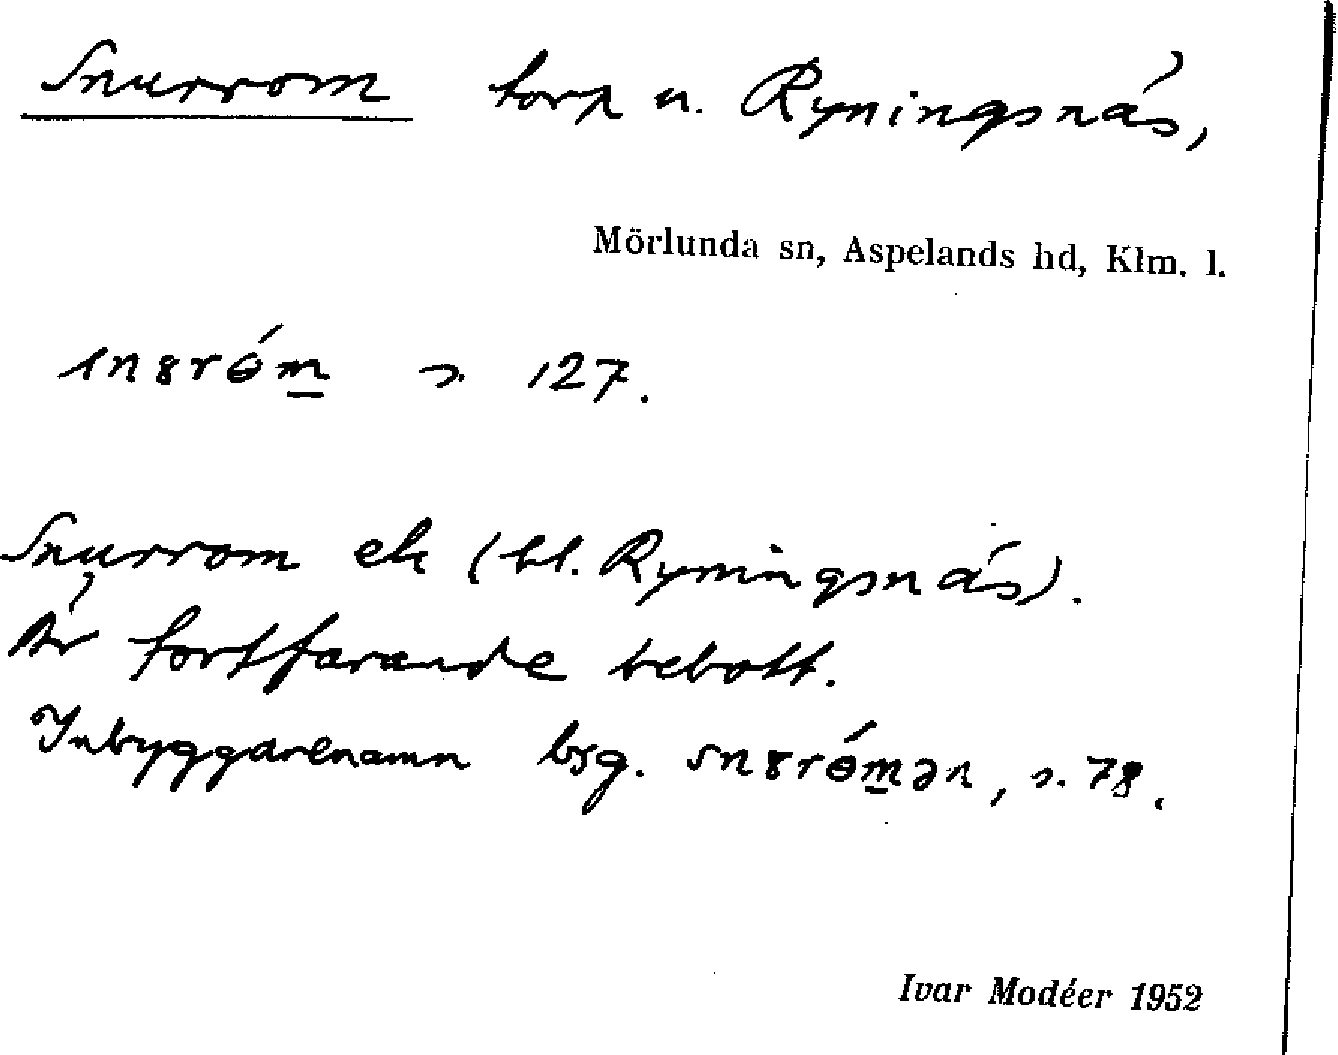 Snurrom torp u. Ryningsnäs,
Mörlunda sn, Aspelands hd, Klm. l.
s. 127.
Snurrom ek (bl. Ryningsnäs).
Är fortfarande bebott.
Inbyggarenamn bsg. s. 78.
Ivar Modéer 1952